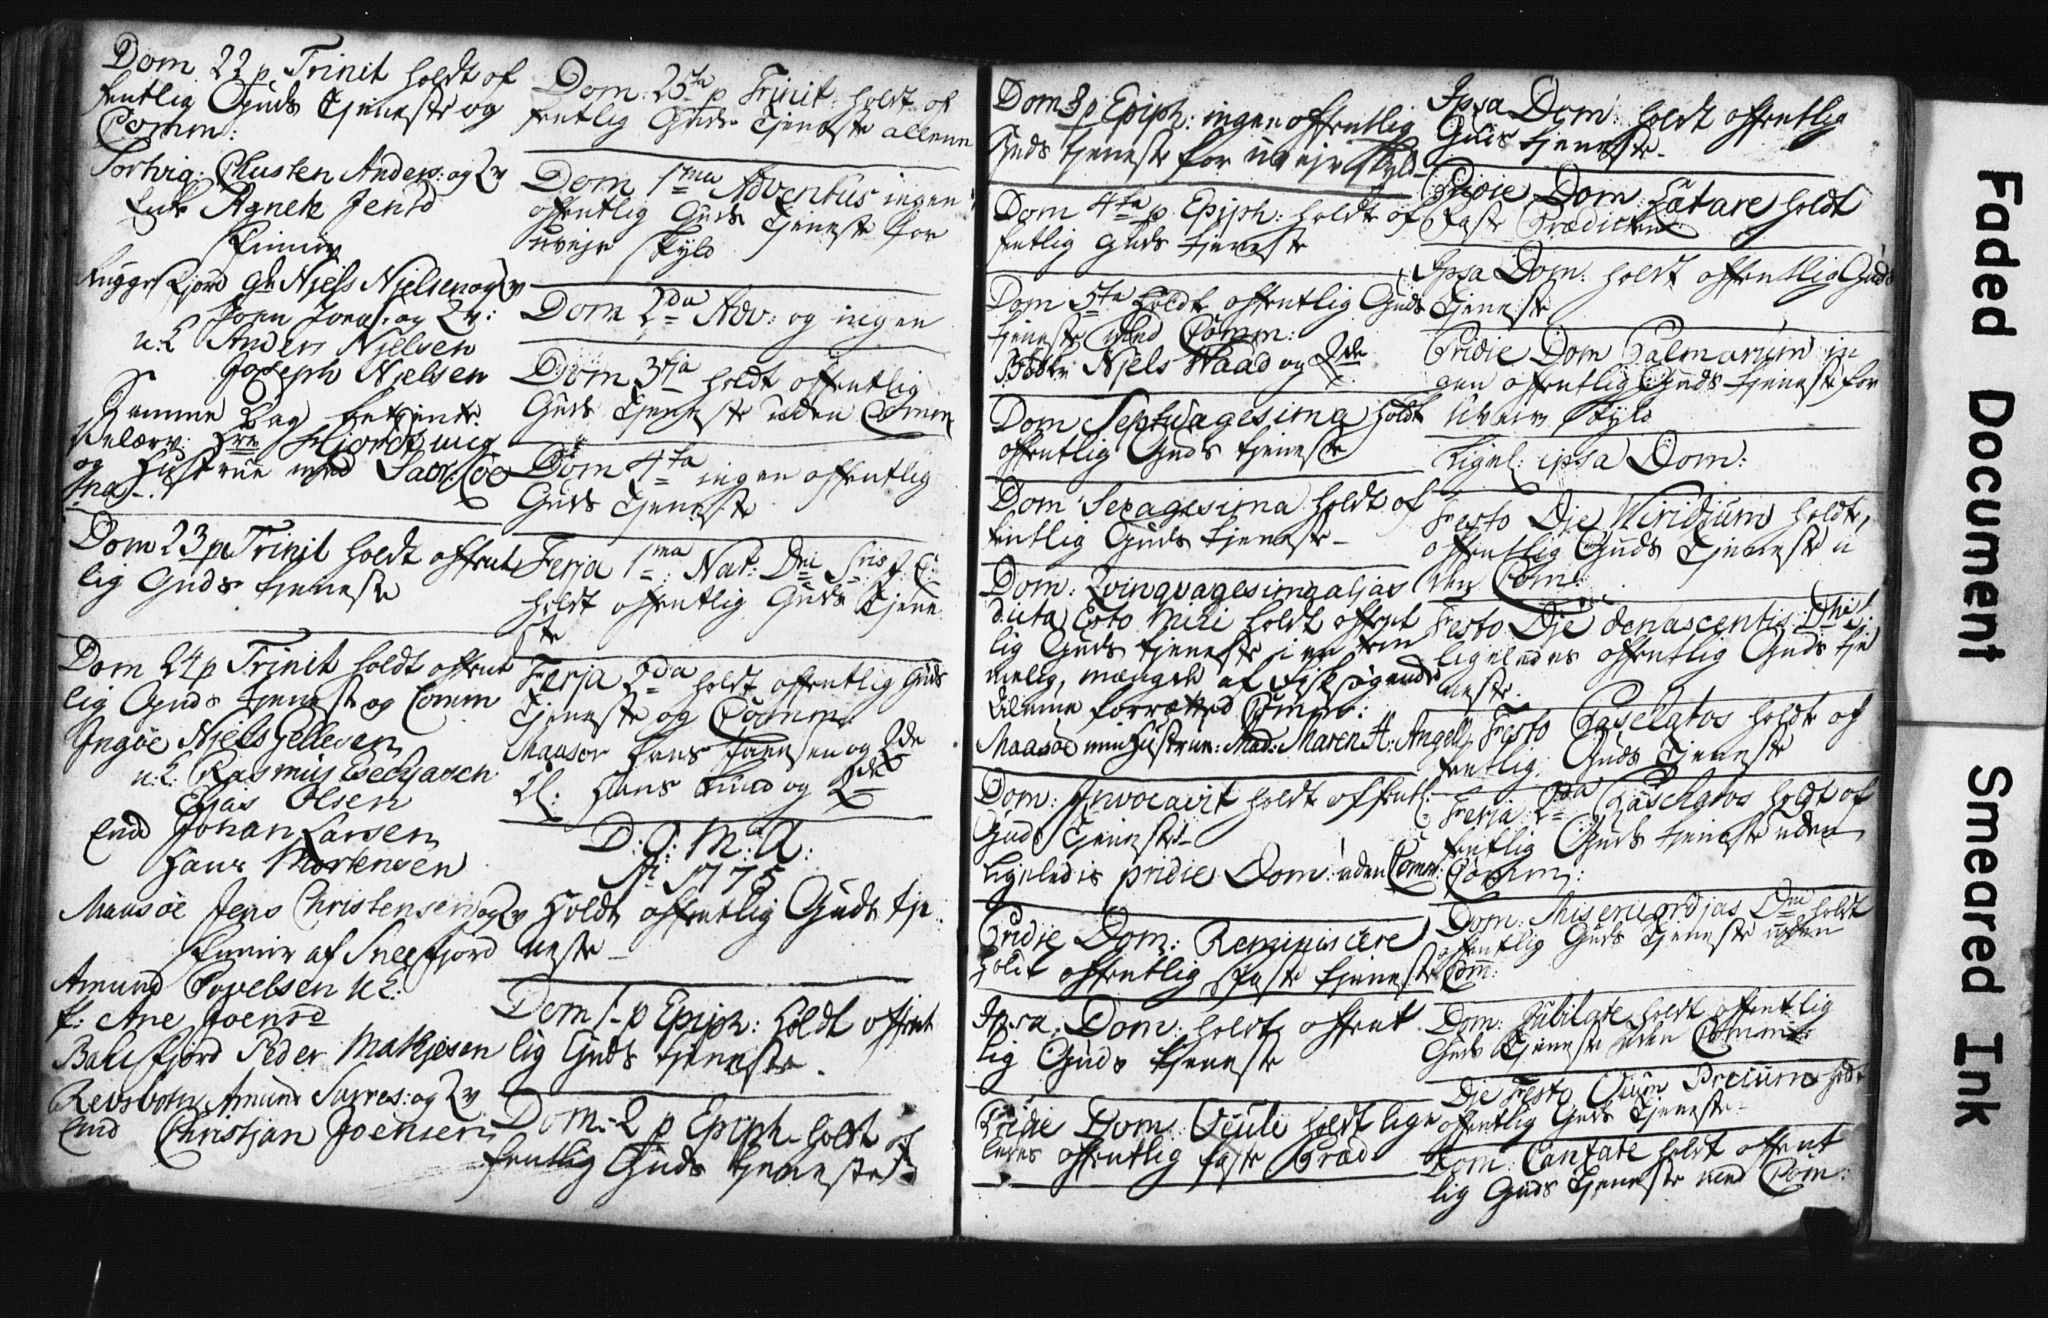 Dom 22 p Trinit holdt of
fentlig Guds tjeneste og
Comm:
Christen Anders: og Qv
Enke Agnete Jensd
Finner
Niels Nielsen og Qv
Joen Joens: og Qv:
u: K Anders Nielsen
Joseph Nielsen
Samme Dag betjente
Hustrue med Sacr: Coe
na
Dom 23 p Trinit holdt offent
lig Guds tjeneste
Dom 24 p Trinit holdt offent
lig Guds tjeneste og Comm
Ingøe Niels Pellesen
u: K: Rasmus
Elias Olsen
End Johan Larsen
Hans Mortensen
Maasøe Jens Christensen og Qv
Finner af Sneefjord
Amund Povelsen u K:
f: Ane Joensd
Bakefjord Peder Mathjesen
Reisbotn Amund Sarres: og Qv
End Christjan Joensen
Dom: 25ta p Trinit: holdt of
fentlig Guds Tjeneste allene
Dom 1ma Adventus ingen
ofentlig Guds Tjeneste for
uveirs skyld
Dom 2da Adv: og ingen
Dom 3tja holdt offentlig
Guds Tjeneste uden Comm
Dom 4ta ingen offentlig
Guds Tjeneste
Ferja 1ma: Nat: Dni
holdt offentlig Guds Tjene
ste
Ferja 2da holdt offentlig Guds
Tjeneste og Comm
Maasøe Hans og Qde
Kl: Hans og Qde
D: O: M: A:
Ao 1775
Holdt offentlig Guds tje
neste
Dom 1 p Epiph: holdt offent
lig Guds tjeneste.
Dom: 2 p Epiph: holdt of
fentlig Guds tjeneste
Dom 3 p Epiph: ingen offentlig
Guds tjeneste for uveirs skyld
Dom 4ta p Epiph: holdt of
fentlig Guds tjeneste
Dom 5ta holdt offentlig Guds
tjeneste med Comm:
Niels Waad og Qde
Dom Septuagesima holdt
offentlig Guds tjeneste
Dom Sexagesima holdt of
fentlig Guds tjeneste
Dom: Qvinqvagesima aljas
dicta Esto Mihi holdt offent
lig Guds tjeneste i en tem
melig mængde af
forrætted Comm:
Maasøe min Hustrue: Mad: Maren H: Angell
Dom: Invocavit holdt offentl:
Guds Tjeneste
Ligeledes pridie Dom: uden Comm:
Pridie Dom: Reminiscere
holdt offentlig Faste tjeneste
Ipsa Dom: holdt offent
lig Guds tjeneste
Pridie Dom: Oculi holdt lige
ledes offentlig faste Præd
Ipsa Dom: holdt offentlig
Guds tjeneste
Pridie Dom: Lætare holdt
Faste Prædicken
Ipsa Dom: holdt offentlig Guds
Tjeneste
Pridie Dom Palmarum in
gen offentlig Guds tjeneste for
Uveirs skyld
Ligel: ipsa Dom:
Festo Dje Viridium holdt
offentlig Guds Tjeneste u
den Com:
Festo Dje denascentis Dni
ligeledes offentlig Guds tje
neste.
Festo Paschatos holdt of
fentlig Guds Tjeneste
Ferja 2da Paschatos holdt of
fentlig Guds tjeneste uden
Comm:
Dom: Misericordjas Dni holdt
offentlig Guds Tjeneste uden
Com:
Dom: Jubilate holdt offentlig
Guds Tjeneste uden Comm:
Dje Festo Osium Precium holdt
offentlig Guds Tjeneste
Dom: Cantate holdt offent
lig Guds Tjeneste med Com:
Faded Document
Smeared Ink